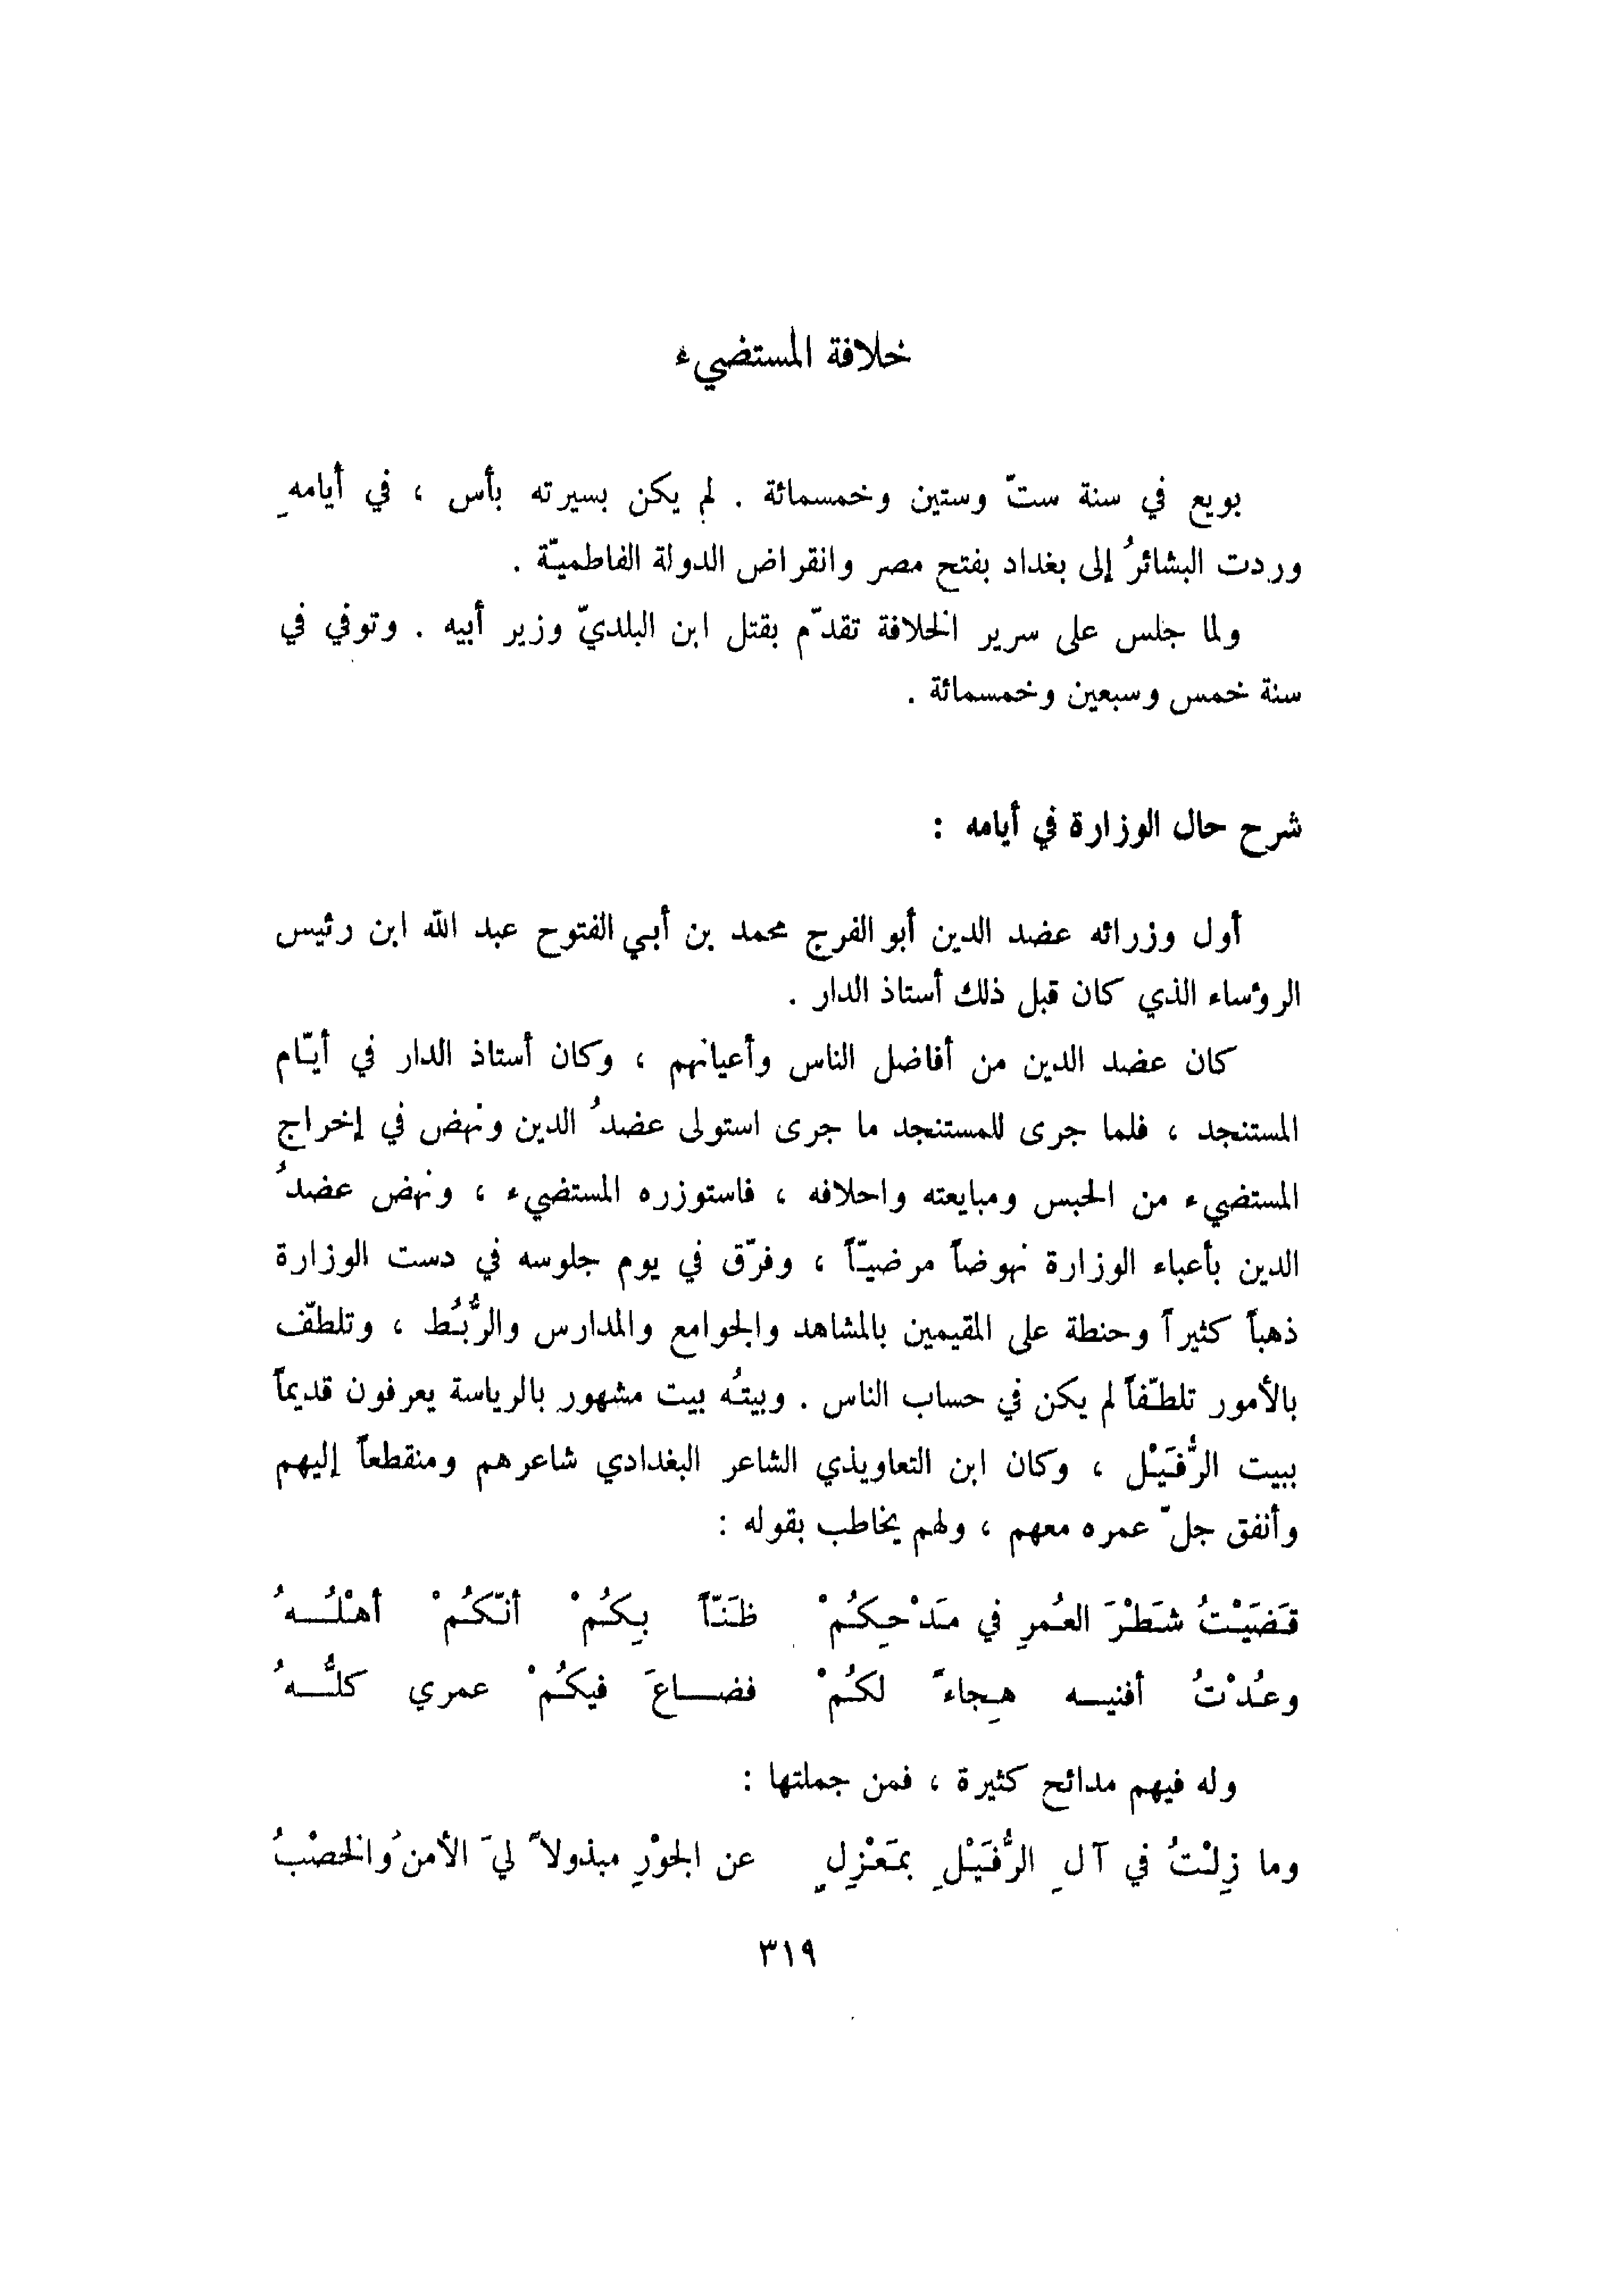 خلافة المستضيء
بويع في سنة ستّ وستين وخمسمائة . لم يكن بسيرته بأس ، في أيامهِ
وردت البشائرُ إلى بغداد بفتح مصر وانقراض الدولة الفاطميّة .
ولما جلس على سرير الخلافة تقدّم بقتل ابن البلديّ وزير أبيه . وتوفي في
سنة خمس وسبعين وخمسمائة .
شرح حال الوزارة في أيامه :
أول وزرائه عضد الدين أبو الفرج محمد بن أبي الفتوح عبد الله ابن رئيس
الرؤساء الذي كان قبل ذلك أستاذ الدار .
كان عضد الدين من أفاضل الناس وأعيانهم ، وكان أستاذ الدار في أيّام
المستنجد ، فلما جرى للمستنجد ما جرى استولى عضدُ الدين ونهض في إخراج
المستضيء من الحبس ومبايعته واحلافه ، فاستوزره المستضيء ، ونهض عضدُ
الدين بأعباء الوزارة نهوضاً مرضيّاً ، وفرّق في يوم جلوسه في دست الوزارة
ذهباً كثيراً وحنطة على المقيمين بالمشاهد والجوامع والمدارس والرُّبُط ، وتلطّف
بالأمور تلطّفاً لم يكن في حساب الناس . وبيتُه بيت مشهور بالرياسة يعرفون قديماً
ببيت الرُّفَيْل ، وكان ابن التعاويذي الشاعر البغدادي شاعرهم ومنقطعاً إليهم
وأنفق جلّ عمره معهم ، ولهم يخاطب بقوله :
قَضَيْتُ شَطْرَ العُمرِ في مَدْحِكُمْ ظَنّاً بِكُمْ أنّكُمْ أهْلُــهُ
وعُدْتُ أفنيــه هِجاءً لكُمْ فضــاعَ فيكُمْ عمري كلُّــهُ
وله فيهم مدائح كثيرة ، فمن جملتها :
وما زِلْتُ في آلِ الرُّفَيْلِ بمَعْزِلٍ عن الجوْرِ مبذولاً ليَ الأمنُ والخصْبُ
٣١٩